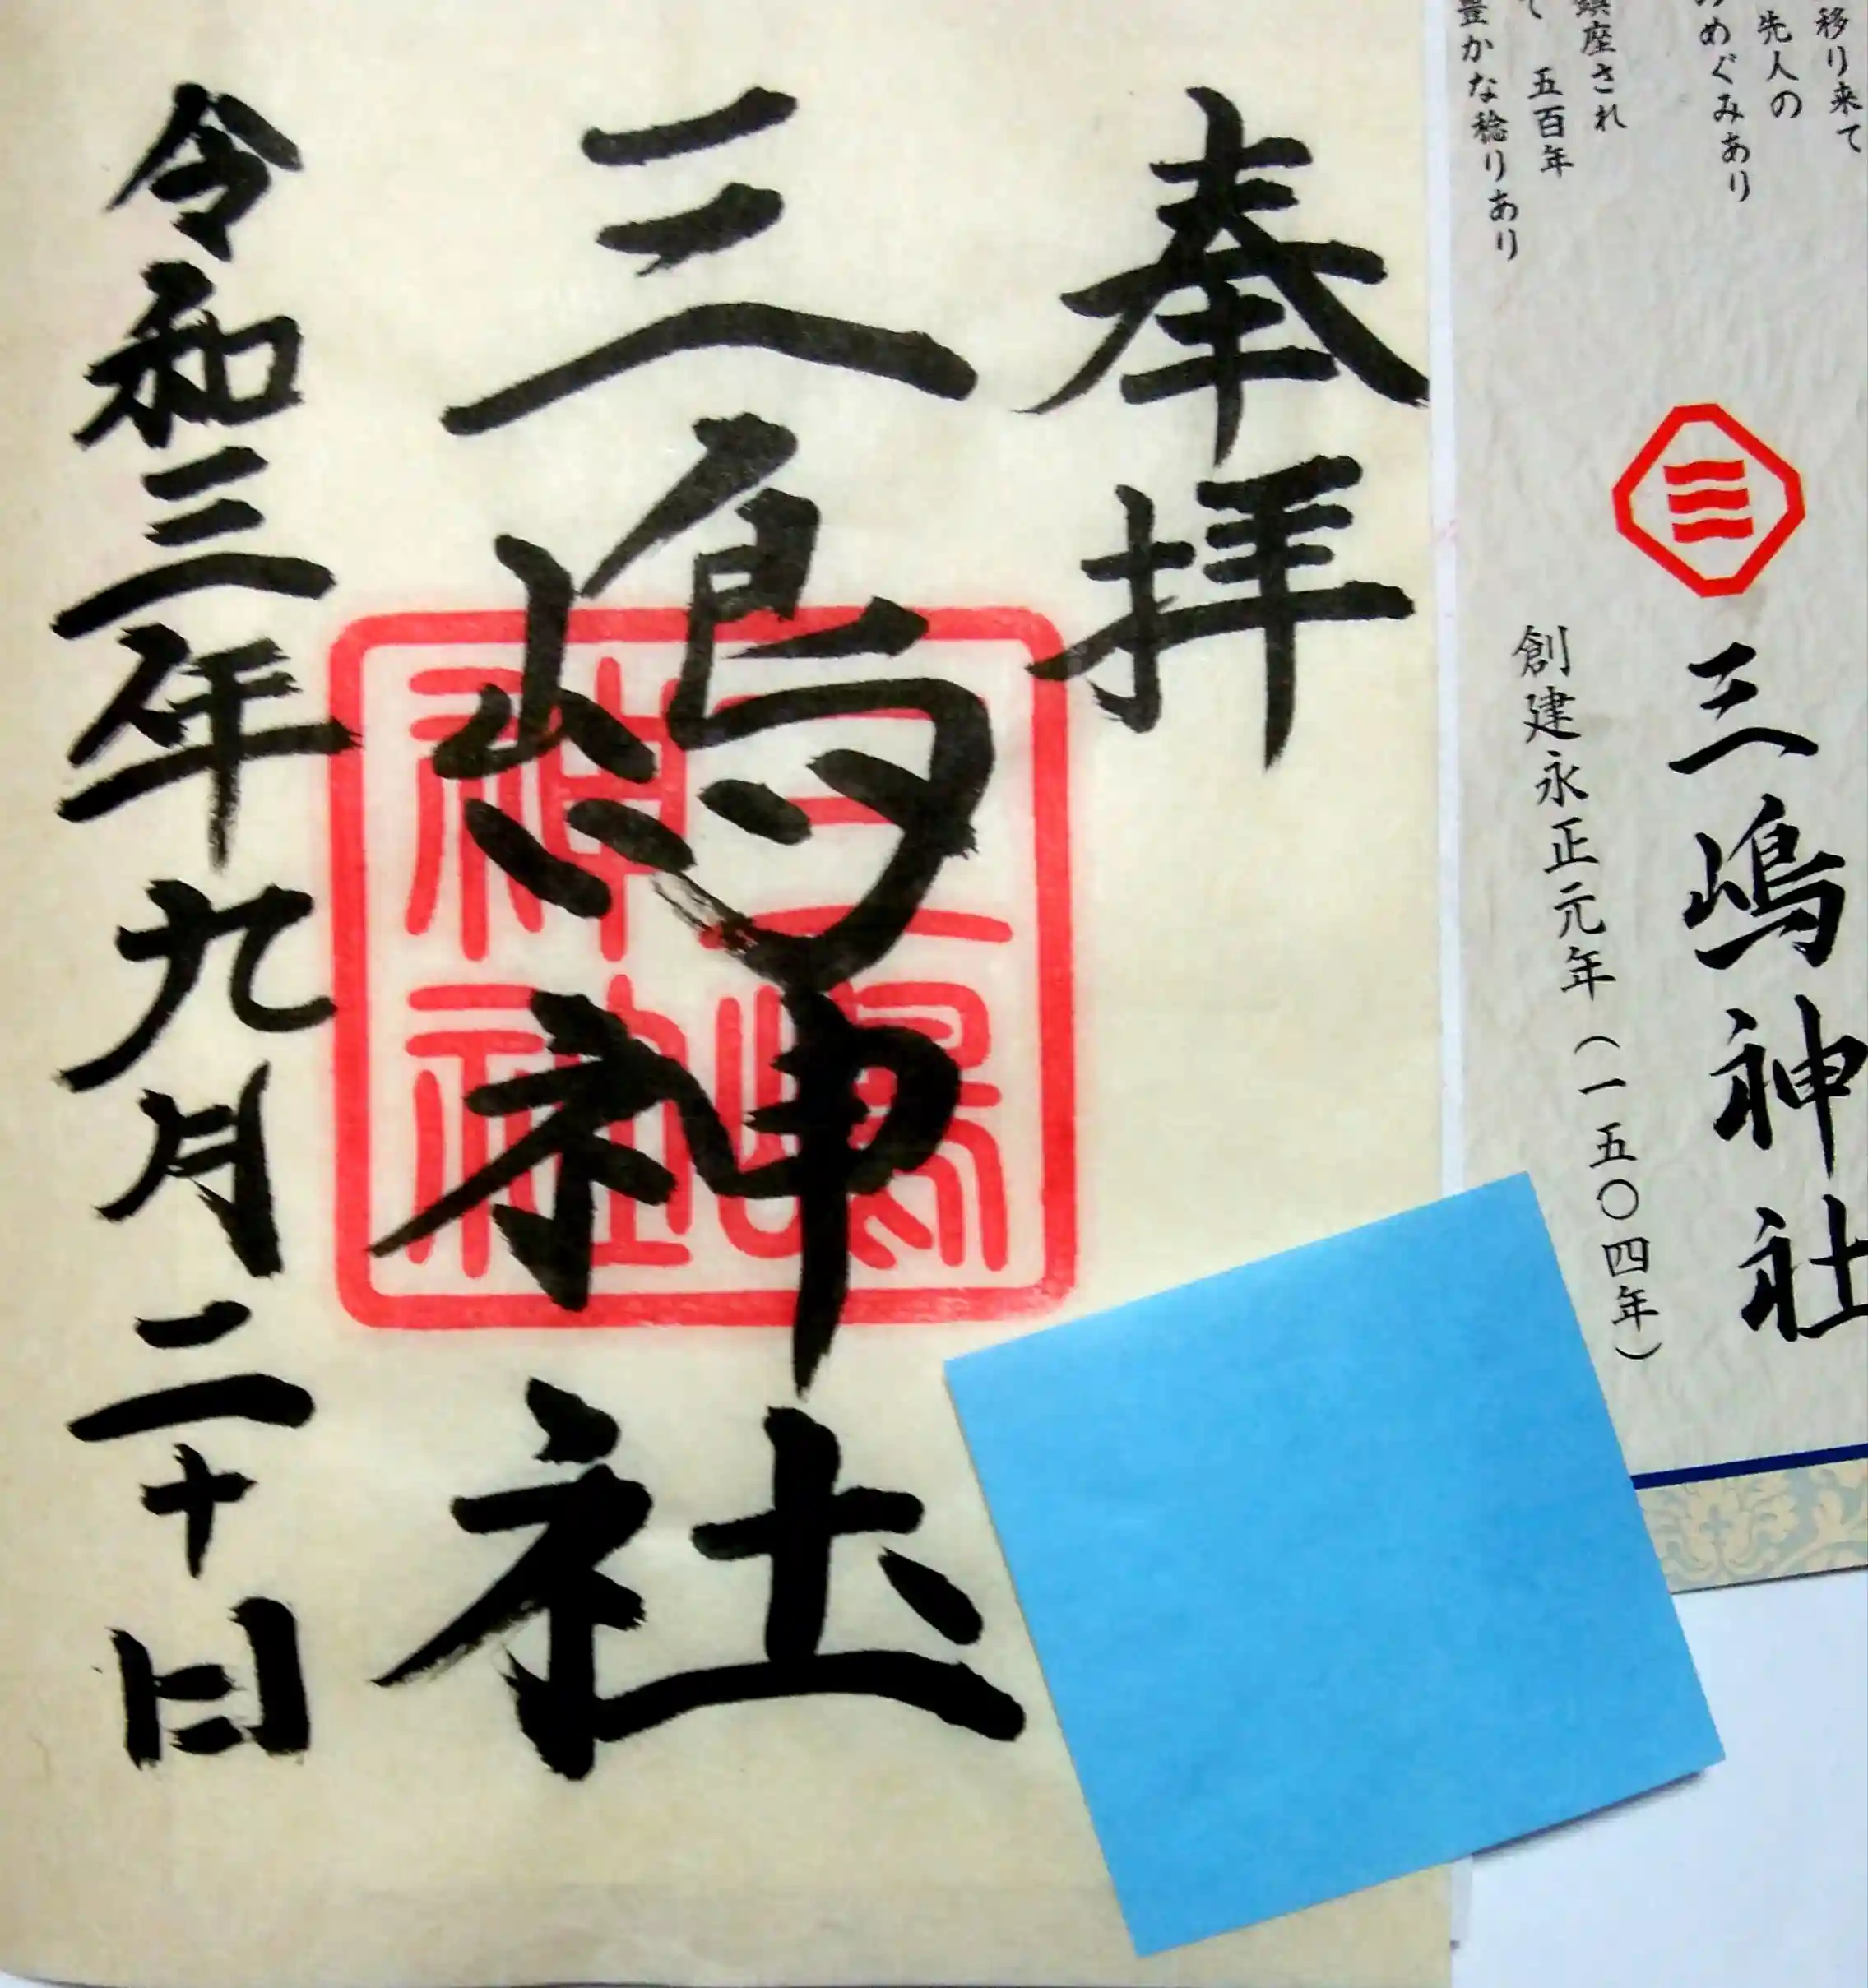 移り来て
先人の
めぐみあり
鎮座され
五百年
豊かな稔りあり
三嶋神社
創建永正元年(一五〇四年)
奉拝
三嶋神社
三嶋神社
令和三年九月二十日